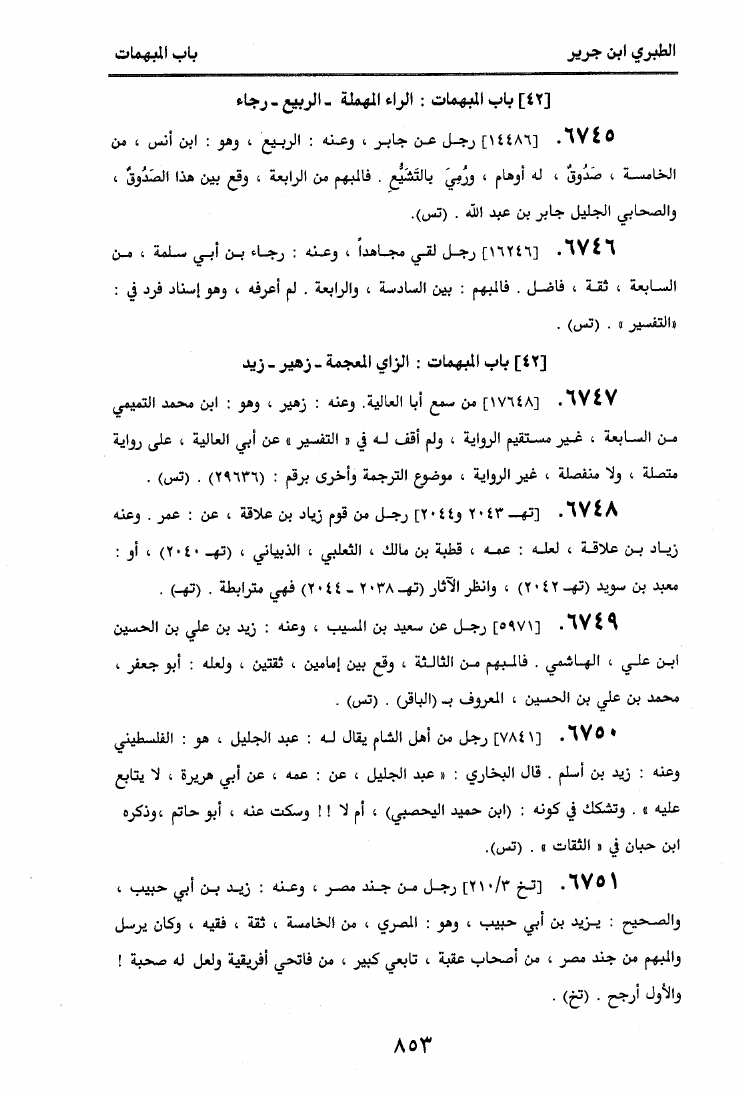 الطبري ابن جرير
باب المبهمات
[٤٢] باب المبهمات : الراء المهملة - الربيع - رجاء
٦٧٤٥. [١٤٤٨٦] رجل عن جابر ، وعنه : الربيع ، وهو : ابن أنس ، من
الخامسة ، صَدُوقٌ ، له أوهام ، ورُمِيَ بالتَشَيُّع . فالمبهم من الرابعة ، وقع بين هذا الصَدُوقُ ،
والصحابي الجليل جابر بن عبد الله . (تس).
٦٧٤٦. [١٦٢٤٦] رجل لقي مجاهداً ، وعنه : رجاء بن أبي سلمة ، من
السابعة ، ثقة ، فاضل . فالمبهم : بين السادسة ، والرابعة . لم أعرفه ، وهو إسناد فرد في :
«التفسير » . (تس) .
[٤٢] باب المبهمات : الزاي المعجمة - زهير - زيد
٦٧٤٧. [١٧٦٤٨] من سمع أبا العالية. وعنه : زهير ، وهو : ابن محمد التميمي
من السابعة ، غير مستقيم الرواية ، ولم أقف له في « التفسير » عن أبي العالية ، على رواية
متصلة ، ولا منفصلة ، غير الرواية ، موضوع الترجمة وأخرى برقم : (٢٩٦٣٦) . (تس) .
٦٧٤٨. [تهـ ٢٠٤٣ و٢٠٤٤] رجل من قوم زياد بن علاقة ، عن : عمر . وعنه
زياد بن علاقة ، لعله : عمه ، قطبة بن مالك ، الثعلبي ، الذبياني ، (تهـ ٢٠٤٠) ، أو :
معبد بن سويد (تهـ ٢٠٤٢) ، وانظر الآثار (تهـ ٢٠٣٨ - ٢٠٤٤) فهي مترابطة . (تهـ) .
٦٧٤٩. [٥٩٧١] رجل عن سعيد بن المسيب ، وعنه : زيد بن علي بن الحسين
ابن علي ، الهاشمي . فالمبهم من الثالثة ، وقع بين إمامين ، ثقتين ، ولعله : أبو جعفر ،
محمد بن علي بن الحسين ، المعروف بـ (الباقر) . (تس) .
٦٧٥٠. [٧٨٤١] رجل من أهل الشام يقال له : عبد الجليل ، هو : الفلسطيني
وعنه : زيد بن أسلم . قال البخاري : « عبد الجليل ، عن : عمه ، عن أبي هريرة ، لا يتابع
عليه » . وتشكك في كونه : (ابن حميد اليحصبي) ، أم لا !! وسكت عنه ، أبو حاتم ،وذكره
ابن حبان في « الثقات » . (تس).
٦٧٥١. [تخ ٢١٠/٣] رجل من جند مصر ، وعنه : زيد بن أبي حبيب ،
والصحيح : يزيد بن أبي حبيب ، وهو : المصري ، من الخامسة ، ثقة ، فقيه ، وكان يرسل
والمبهم من جند مصر ، من أصحاب عقبة ، تابعي كبير ، من فاتحي أفريقية ولعل له صحبة !
والأول أرجح . (تخ) .
٨٥٣